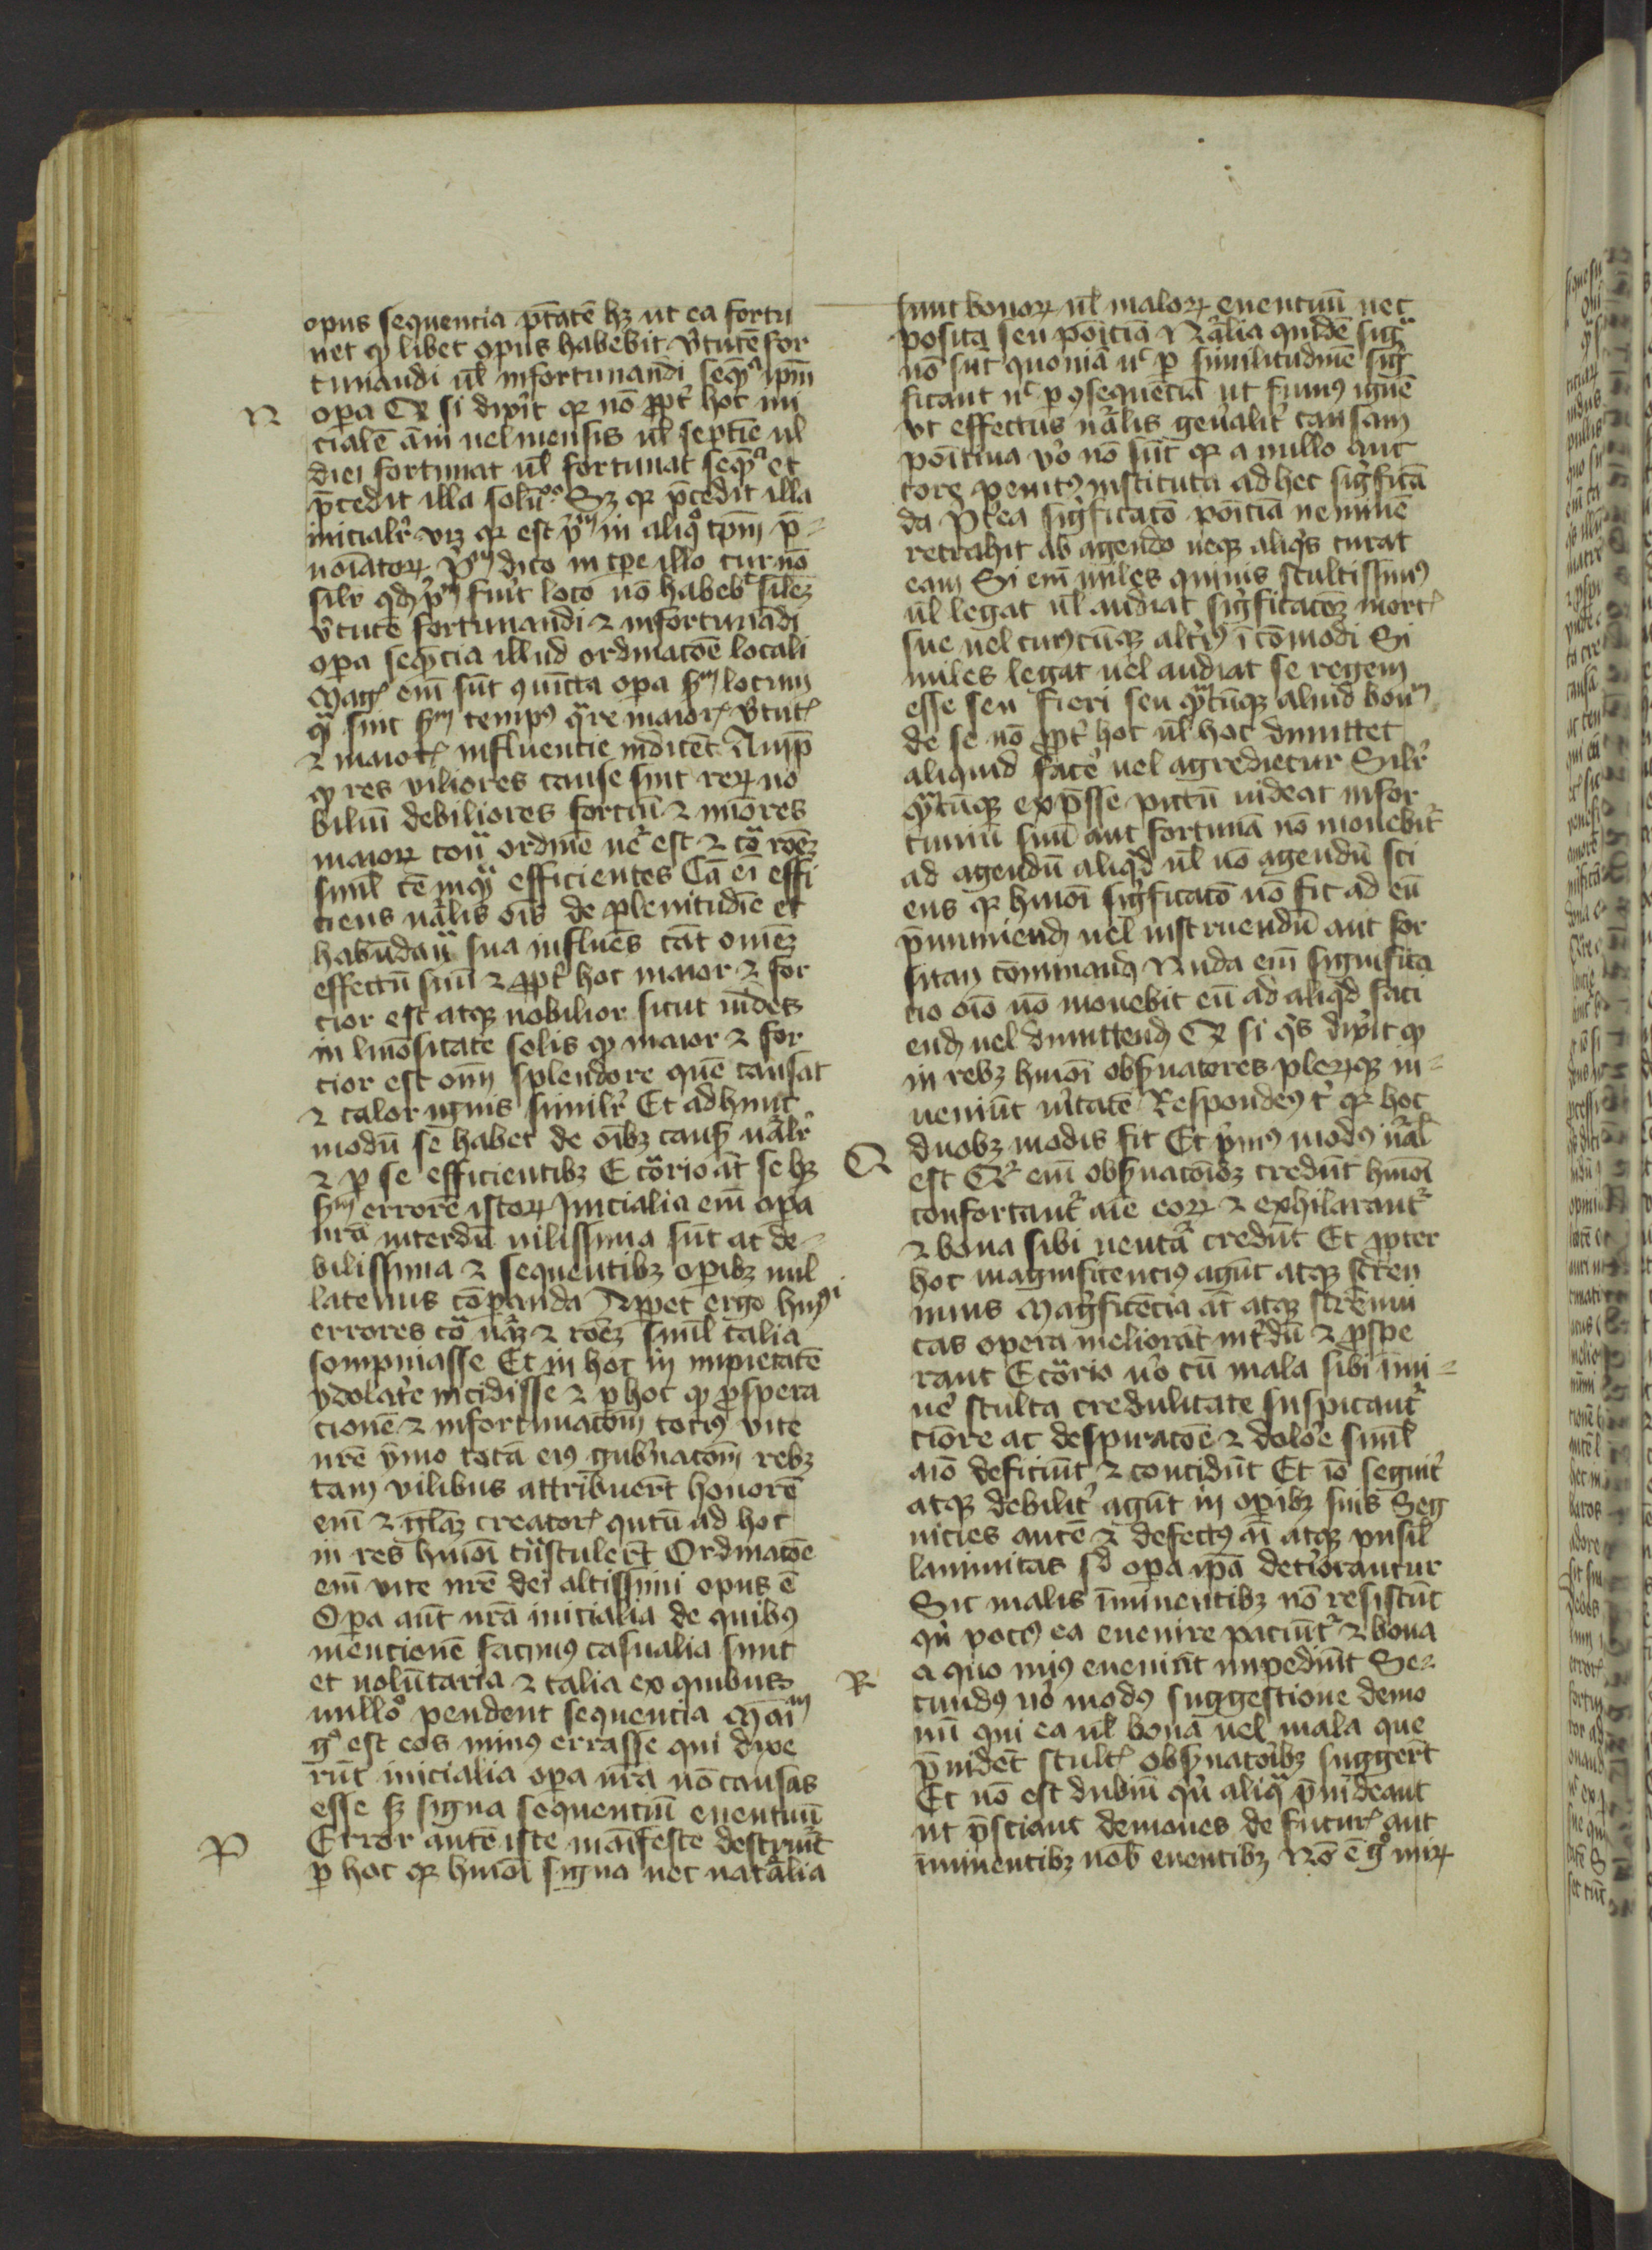 opus sequencia ptātē hꝫ ut ea fortu
net qꝫ libet opus habebit v̓tutē for
tunandi ul̓ infortunandi seqn̄ ip̄m
N
opa Qꝛ si dix̓it qꝛ nō ꝓpt̓ hoc ini
cialē āni uel mensis ul̓ septīe ul̓
diei fortunat ul̓ fortunat seqn̄ et
p̄cedit illa solū Sꝫ qꝛ p̄cedit illa
inicialr̓ vꝫ qꝛ est p̓m in aliqͦ tp̄m p̄=
noīatoꝝ dico in tp̄e illo cur nō
silr̓ qd̓ p̓m fuit loco nō habebit silēꝫ
v̓tutē fortunandi ⁊ infortunādi
opa seqn̄cia illud ordinacōe locali
Mag̓ em̄ sūt ꝯuīcta opa scd̓m locum
qͣ sint scd̓m tempꝰ qͣre maior̓ v̓tut̓
⁊ maior̓ influencie indicēt Amp̄
qꝫ res viliores cause sint reꝝ no
biliū debiliores forciū ⁊ mīores
maioꝝ ordinē ē est ⁊ cͣ roēꝫ
simͥl tē inqͣ efficientes Cā ei effi
ciens nālis oīs de plenitudīe et
habūdanͥ sua influēs cāt omēꝫ
effectū suū ⁊ ꝓpt̓ hoc maior ⁊ for
cior est atqꝫ nobilior sicut uides
in lūositate solis qꝫ maior ⁊ for
cior est om̄ splendore quē causat
⁊ calor ignis similr̓ Et ad hunc
modū se habet de oībꝫ causis nālr̓
⁊ p se efficientibꝫ E cͦrio āt se hꝫ
scd̓m errorē istoꝝ Inicialia em̄ opa
nrā interdū uilissima sūt ac de=
bilissima ⁊ sequentibꝫ opibꝫ nul
latenus cōpanda Appet ergo huiꝰ
errores cͣ nāꝫ ⁊ roēꝫ simͥl talia
sompniasse Et in hoc in impietatē
ydolat̓e incidisse ⁊ p hoc qꝫ ꝓspera
cionē ⁊ infortunacōm tociꝰ vite
nrē ymo totā eiꝰ gub̓nacōm rebꝫ
tam vilibus attribuer̄t honorē
em̄ ⁊ gl̄aꝫ creator̓ qntū ad hoc
in res hmōi tͣnstuler̄t Ordinacōe
em̄ vite nrē dei altissimi opus ē
Opa aūt nrā inicialia de quibꝰ
mencionē facimꝰ casualia sunt
et volūtaria ⁊ talia ex quibus
nulloͦ pendent sequencia Mām
gͦ est eos minꝰ errasse qui dixe
rūt inicialia opa nrā nō causas
esse sꝫ signa sequenciū euentuū
P
Error autē iste manifeste destruit̓
p hoc qꝛ hmōi signa nec natalia
sunt bonoꝝ ul̓ maloꝝ euentuū nec
posita seu poīciā Nālia quidē sigͣ
nō sūt quoniā nͨ p similitudinē sig̓
ficant nͨ p ꝯsequenciā ut fumꝰ ignē
vt effectus nālis gen̓alit̓ causam
poīciua v̓o nō sūt qꝛ a nullo auc
tore penitꝰ instituta ad hec sigficā
da P̄t̓ea sigficacō poīciā neminē
retrahit ab agendo neqꝫ aliqͥs curat
eam Si em̄ miles quiuis stultissimꝰ
ul̓ legat ul̓ audiat sigficacōꝫ mort̓
sue uel cuiꝰcūqꝫ alt̓iꝰ īcōmodi Si
miles legat uel audiat se regem
esse seu fieri seu qͣlcūqꝫ aliud bonū
de se nō ꝓpt̓ hoc ul̓ hoc dimittet
aliquid facē uel agredietur Silr̓
qͣlcūqꝫ exp̄sse pictū uideat infor
tuniū suū aut fortunā nō mouebit̓
ad agendū aliqͥd ul̓ nō agendū sci
ens qꝛ hmōi sigficacō nō fit ad eū
p̄muniend̓ uel instruendū aut for
sitan cōminand̓ Nuda em̄ significa
cio oīo nō mouebit eū ad aliqͥd faci
end̓ uel dimittend̓ Qꝛ si qͥs dix̓it qꝫ
in rebꝫ hmōi obs̓uatores pleriqꝫ in=
ueniūt ūitatē Respondeꝰ t̓ qꝛ hoc
duobꝫ modis fit Et p̓mꝰ modꝰ nāl̓
Q
est Qꝛ em̄ obs̓uacōibꝫ credūt hmōi
confortant̓ aīe eoꝝ ⁊ exhilarant̓
⁊ bona sibi uentͣ credūt Et ꝓpter
hoc magnificenciꝰ agūt atqꝫ stren
nius Magficēcia āt atqꝫ strēnui
tas opera meliorāt int̓dū ⁊ ꝓspe
rant E cͦrio ūo cū mala sibi īmi=
nē stulta credulitate suspicant̓
timore ac desperacōe ⁊ dolōe simͥl
aīo deficiūt ⁊ concidūt Et iō segnit̓
atqꝫ debilit̓ agūt in opibꝫ suis Seg
nicies autē ⁊ defectꝰ aī atqꝫ pusil
lanimitas sd̓ opa ip̄a deteriorantur
Sic malis īminentibꝫ nō resistūt
qͥn pociꝰ ea euenire paciūt̓ ⁊ bona
R
a quo miꝰ eueniūt impediūt Se=
cundꝰ ūo modꝰ suggestione demo
nū qui ea ul̓ bona uel mala que
p̄uidēt stult̓ obs̓uatoībꝫ sugger̄t
Et nō est dubiū qͥn aliqͣ p̄uideant
ut p̄sciant demones de futur̓ aut
īminentibꝫ nob̓ euentibꝫ Nō ē gͦ miꝝ